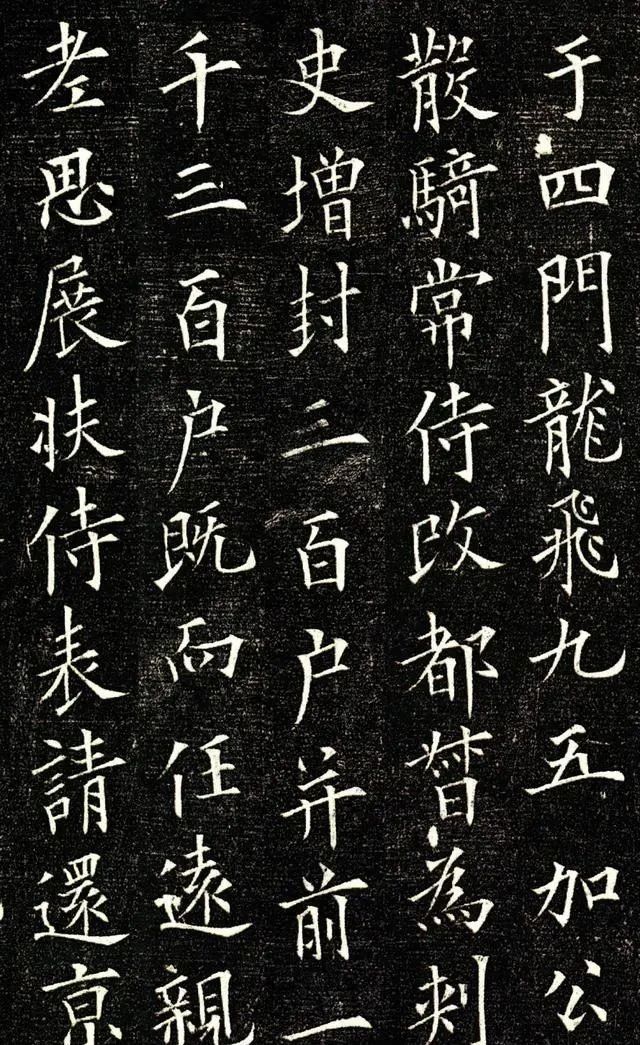 于四門龍飛九五加公
散騎常侍改都督為刺
史增封三百户并前一
千三百户既而任遠親
老思展扶侍表請還京